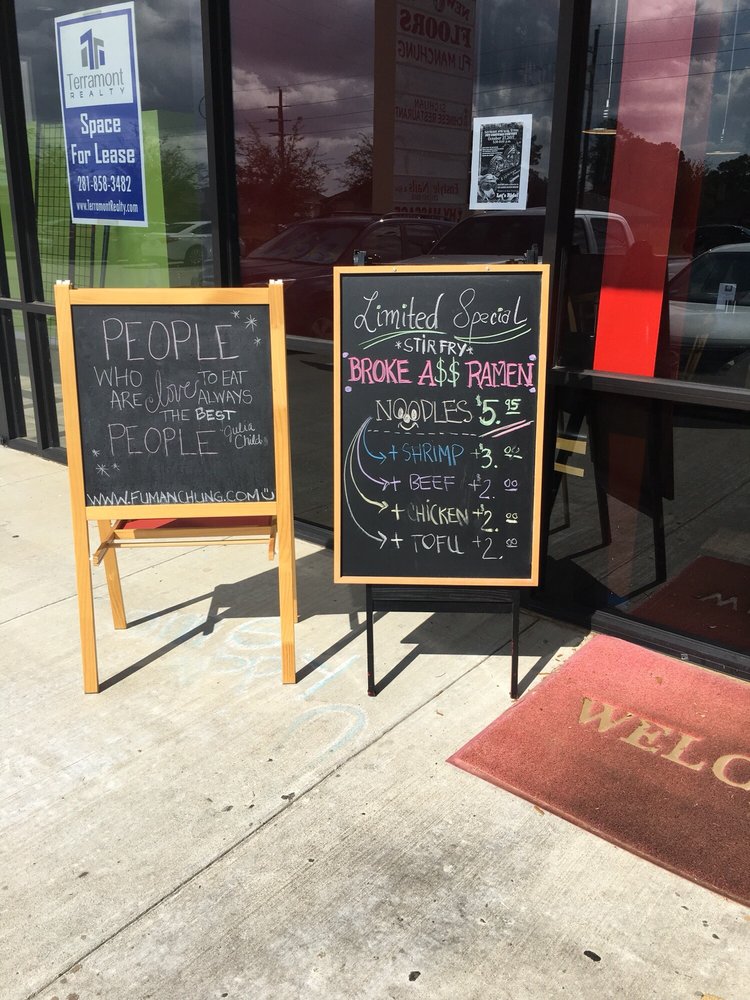 Terramont
REALTY
Space
For Lease
281-858-3482
www.TerramontRealty.com
PEOPLE
WHO love TO EAT
ARE ALWAYS
THE BEST
PEOPLE "Julia
Child"
WWW.FUMANCHUNG.COM
Limited Special
*STIR FRY*
BROKE A$$ RAMEN
NOODLES $5.95
+ SHRIMP +$3.00
+ BEEF +$2.00
+ CHICKEN +$2.00
+ TOFU +2.00
NEW
FLOORS
FU MANCHUNG
SICHUAN
CHINESE RESTAURANT
Nails
Let's Ride!
WELCO